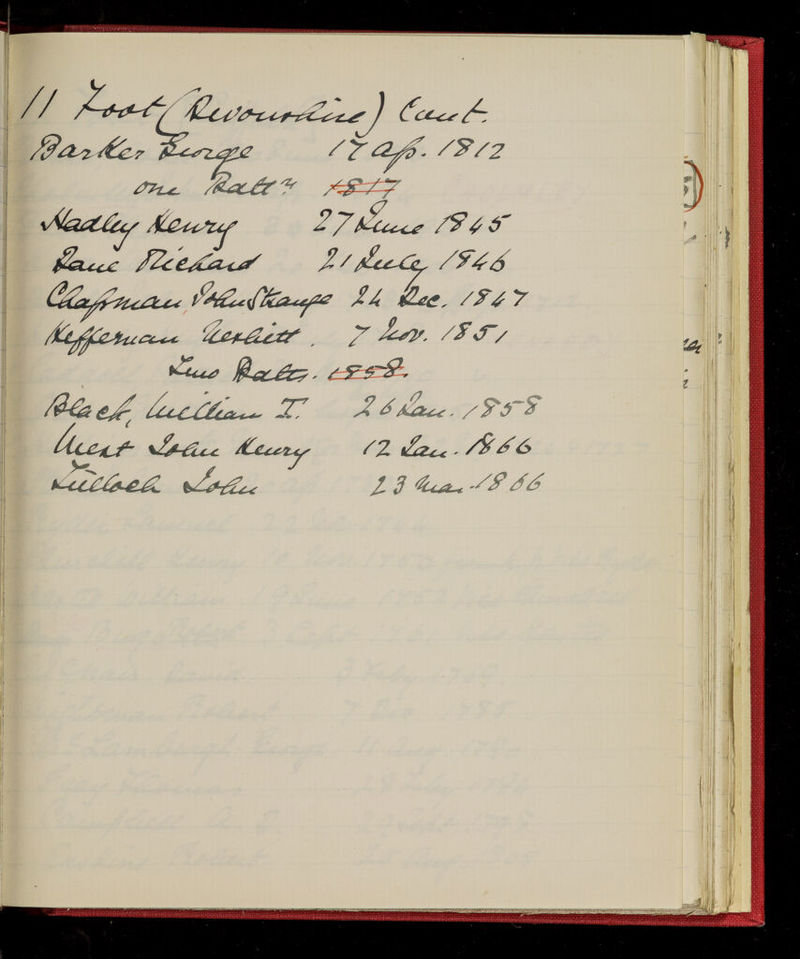 11 Foot (Devonshire) Cont.
Barker George 17 Ap. 1812
one Battn 1817
Hadley Henry 27 June 1845
Lane Richard 21 July 1846
Chapman John Strange 24 Dec. 1847
Heffernan Nesbitt. 7 Nov. 1851
Two Batts. 1858.
Black, William T. 26 Jan. 1858
West John Henry 12 Jan. 1866
Tulloch John 23 Mar 1866